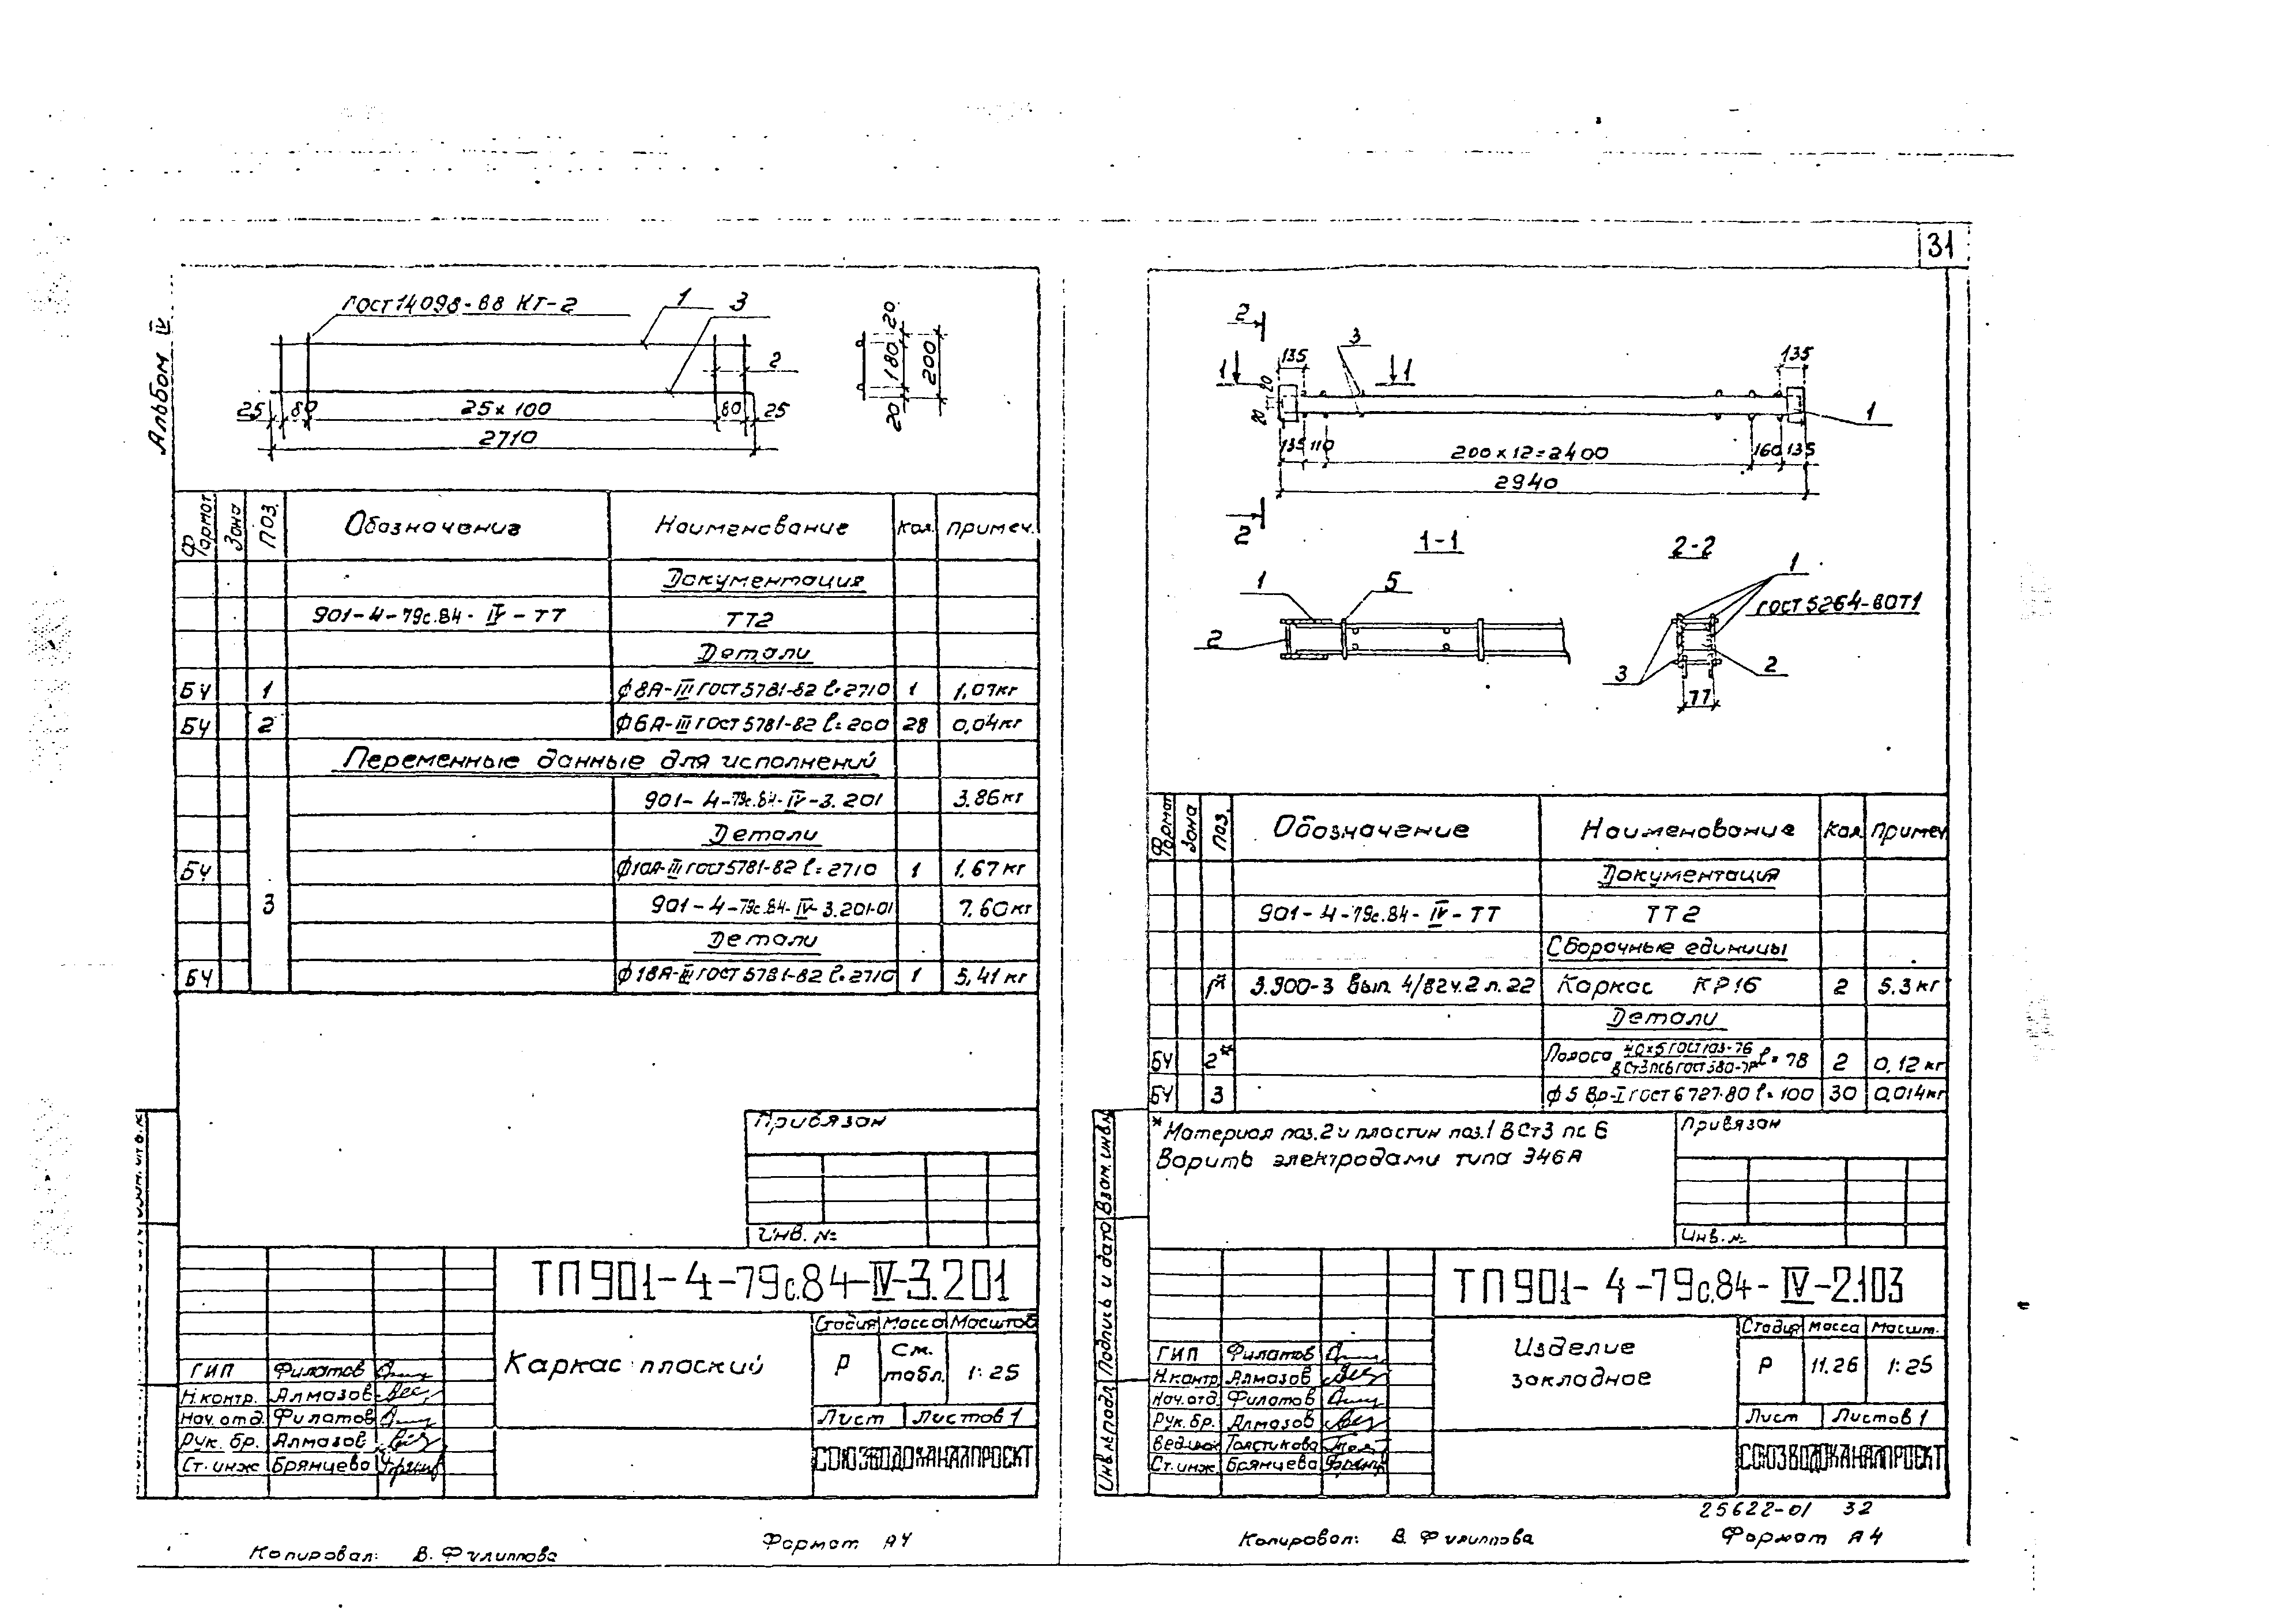 31
Альбом IV
ГОСТ 14098-88 КТ-2
1
3
2
25
80
25х100
80
25
2710
20
180
20
200
Формат
Зона
Поз.
Обозначение
Наименование
Кол.
Примеч.
Документация
901-4-79с.84-IV-ТТ
ТТ2
Детали
БЧ 1 ф8А-III ГОСТ 5781-82 ℓ=2710 1 1,07кг
БЧ 2 ф6А-III ГОСТ 5781-82 ℓ=200 28 0,04кг
Переменные данные для исполнений
901-4-79с.84-IV-3.201 3.86кг
Детали
БЧ ф10А-III ГОСТ 5781-82 ℓ=2710 1 1,67кг
3
901-4-79с.84-IV-3.201-01 7.60кг
Детали
БЧ ф18А-III ГОСТ 5781-82 ℓ=2710 1 5,41кг
Привязан
Инв. №
ТП 901-4-79с.84-IV-3.201
Каркас плоский
Стадия Масса Масштаб
Р См. табл. 1:25
Лист Листов 1
СОЮЗВОДОКАНАЛПРОЕКТ
ГИП Филатов
Н.контр. Алмазов
Нач.отд. Филатов
Рук. бр. Алмазов
Ст.инж. Брянцева
Копировал: В. Филиппова
Формат А4
2
1
135
3
1
135
20
20
1
135
110
200х12=2400
160
135
2940
2
1-1
2-2
1
5
2
1
ГОСТ 5264-80Т1
3
2
77
Формат
Зона
Поз.
Обозначение
Наименование
Кол
Примеч
Документация
901-4-79с.84-IV-ТТ
ТТ2
Сборочные единицы
1* 3.900-3 Вып. 4/82ч.2 л.22 Каркас КР16 2 5.3кг
Детали
БЧ 2* Полоса 40х5 ГОСТ 103-76 ℓ=78 2 0,12кг
БЧ 3 ф5 Вр-I ГОСТ 6727-80 ℓ=100 30 0,014кг
*Материал поз.2 и пластин поз.1 ВСт3 пс 6
Варить электродами типа Э46А
Привязан
Инв. №
Инв. № подл.
Подпись и дата
Взам. инв. №
ТП 901-4-79с.84-IV-2.103
Изделие
закладное
Стадия Масса Масшт.
Р 11.26 1:25
Лист Листов 1
СОЮЗВОДОКАНАЛПРОЕКТ
ГИП Филатов
Н.контр Алмазов
Нач.отд. Филатов
Рук. бр. Алмазов
Вед.инж Толстикова
Ст.инж. Брянцева
25622-01 32
Копировал: В. Филиппова
Формат А4